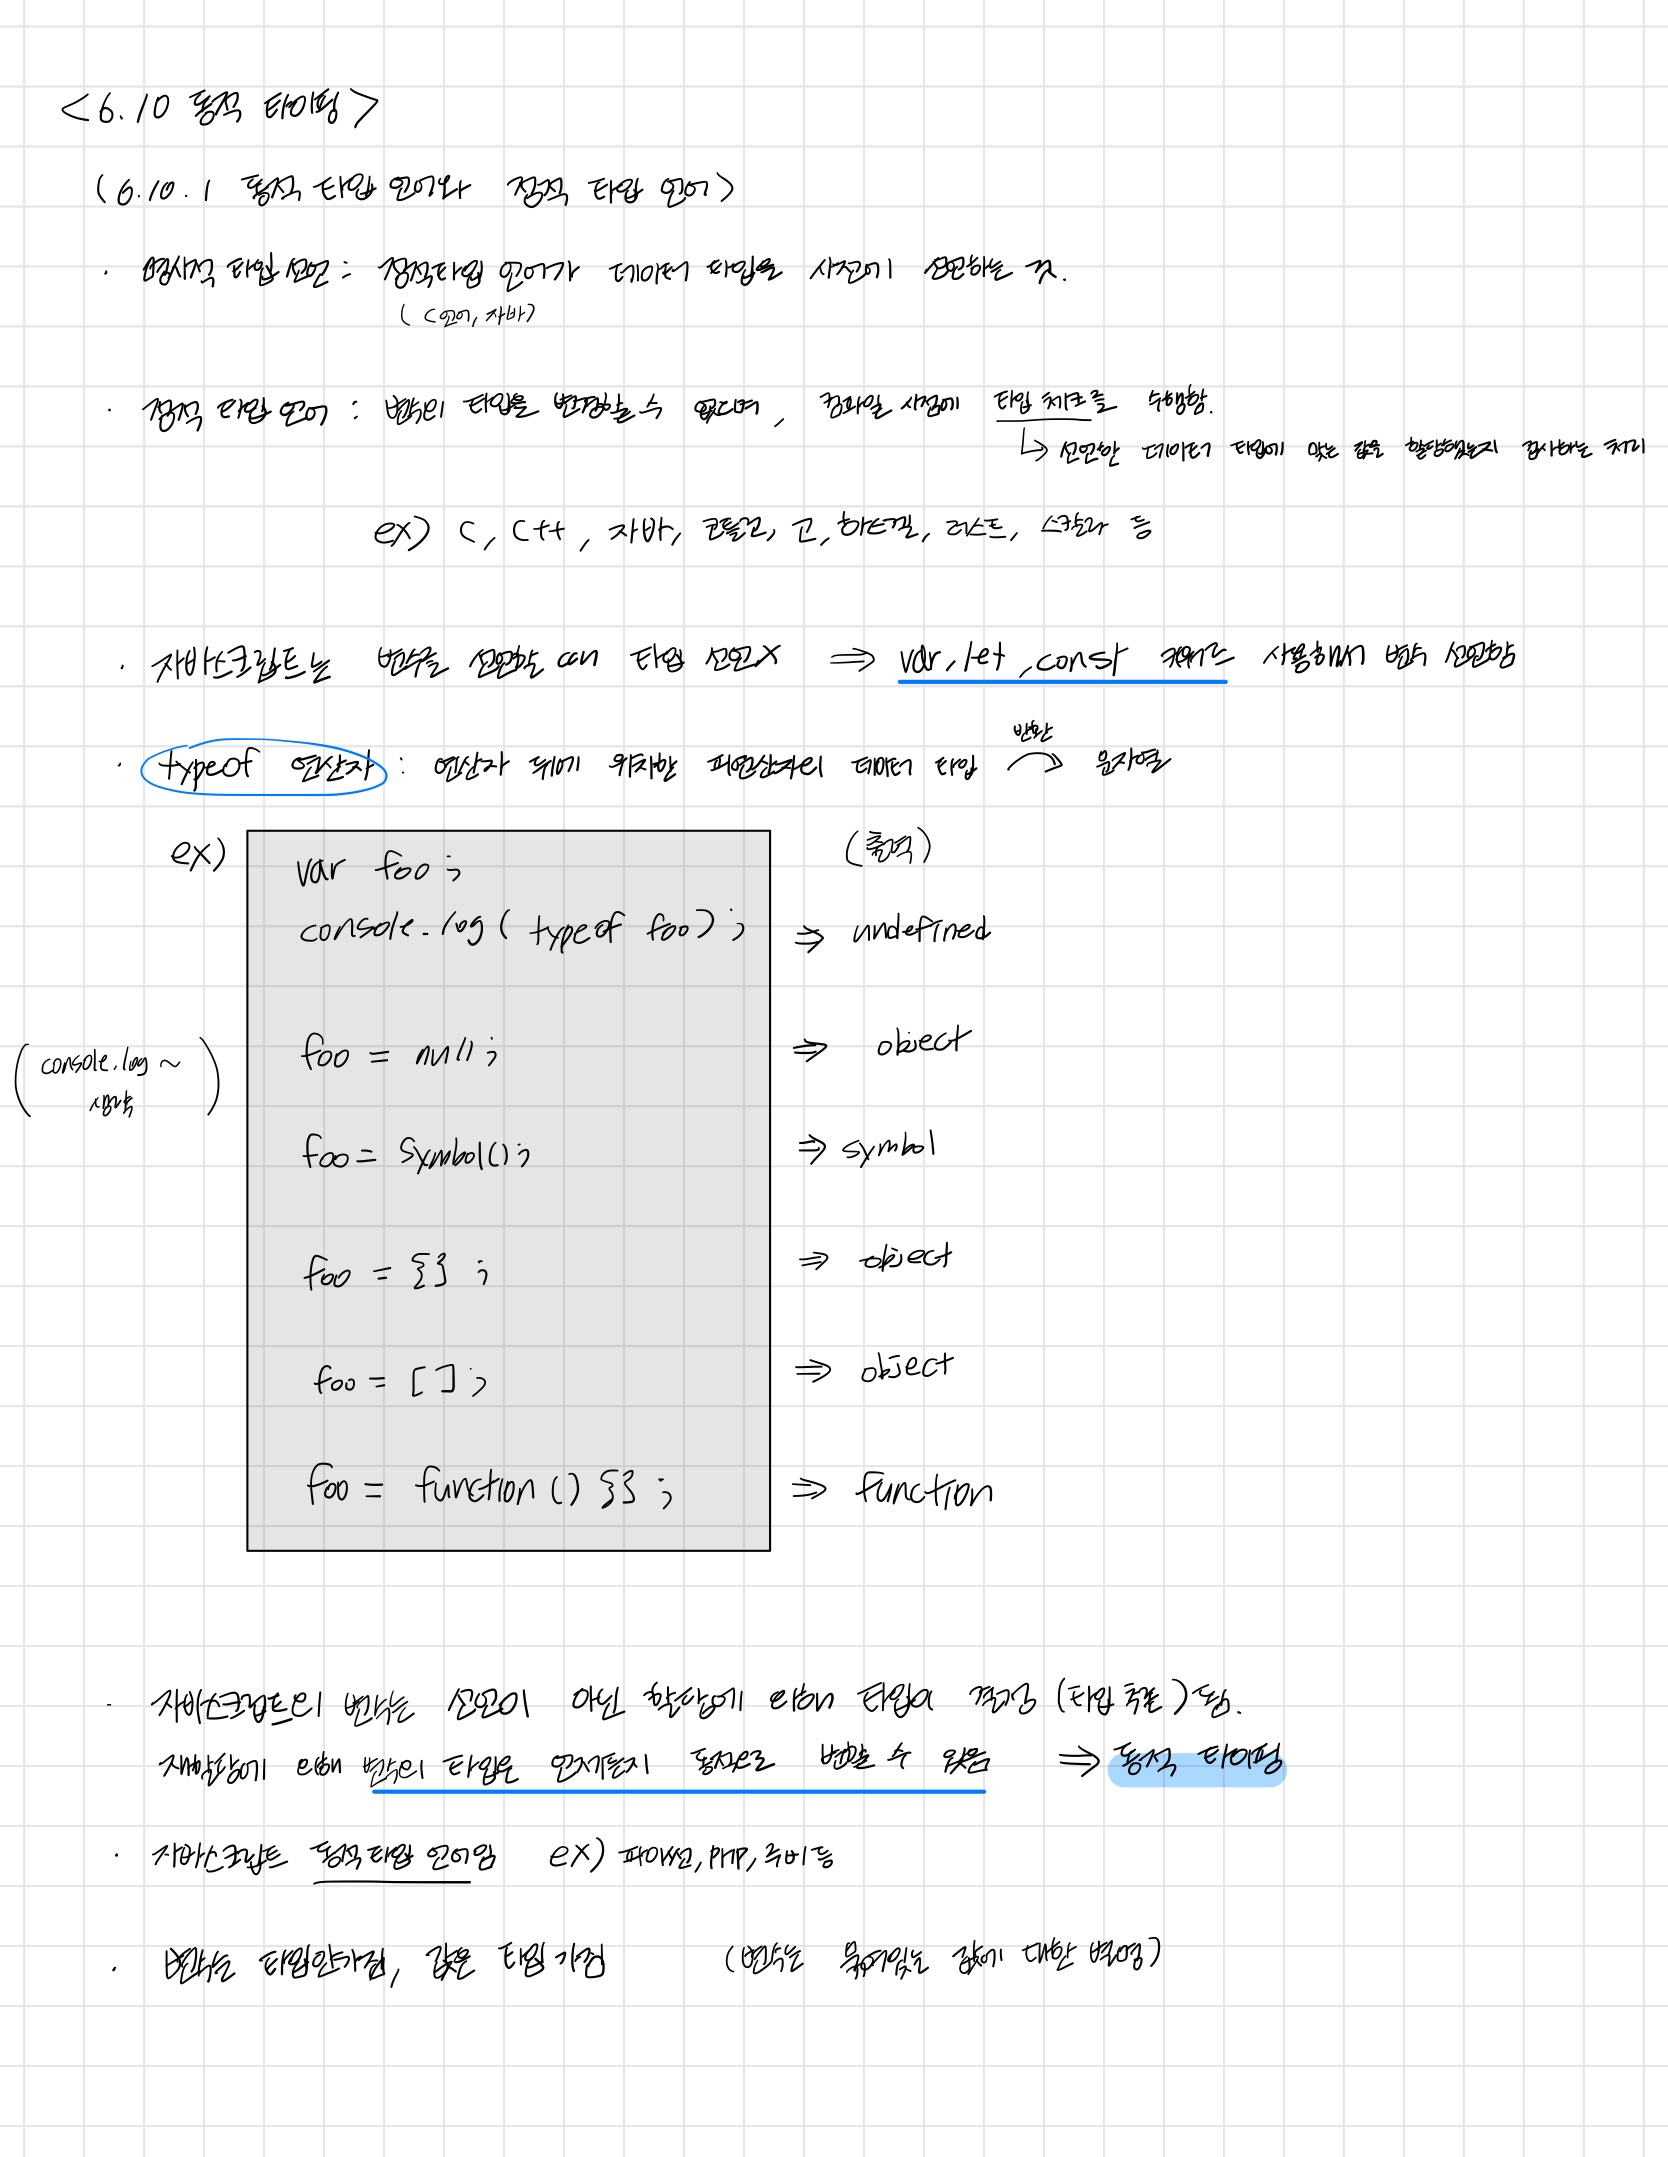 <6.10 동적 타이핑>
(6.10.1 동적 타입 언어와 정적 타입 언어)
· 명시적 타입 선언 : 정적타입 언어가 데이터 타입을 사전에 선언하는 것.
(C언어, 자바)
· 정적 타입 언어 : 변수의 타입을 변경할 수 없으며, 컴파일 시점에 타입 체크를 수행함.
↳ 선언한 데이터 타입에 맞는 값을 할당했는지 검사하는 처리
ex) C, C++, 자바, 코틀린, 고, 하스켈, 러스트, 스칼라 등
· 자바스크립트는 변수를 선언할 때 타입 선언X ⇒ var, let, const 키워드 사용해서 변수 선언함
반환
· typeof 연산자 : 연산자 뒤에 위치한 피연산자의 데이터 타입 → 문자열
ex) (출력)
var foo ;
console.log( typeof foo ) ; ⇒ undefined
foo = null ; ⇒ object
(console.log ~
생략)
foo = Symbol() ; ⇒ symbol
foo = {} ; ⇒ object
foo = [] ; ⇒ object
foo = function () {} ; ⇒ function
· 자바스크립트의 변수는 선언이 아닌 할당에 의해 타입이 결정 (타입 추론) 됨.
재할당에 의해 변수의 타입은 언제든지 동적으로 변할 수 있음 ⇒ 동적 타이핑
· 자바스크립트 동적 타입 언어임 ex) 파이썬, PHP, 루비 등
· 변수는 타입안가짐, 값은 타입 가짐 (변수는 묶여있는 값에 대한 별명)